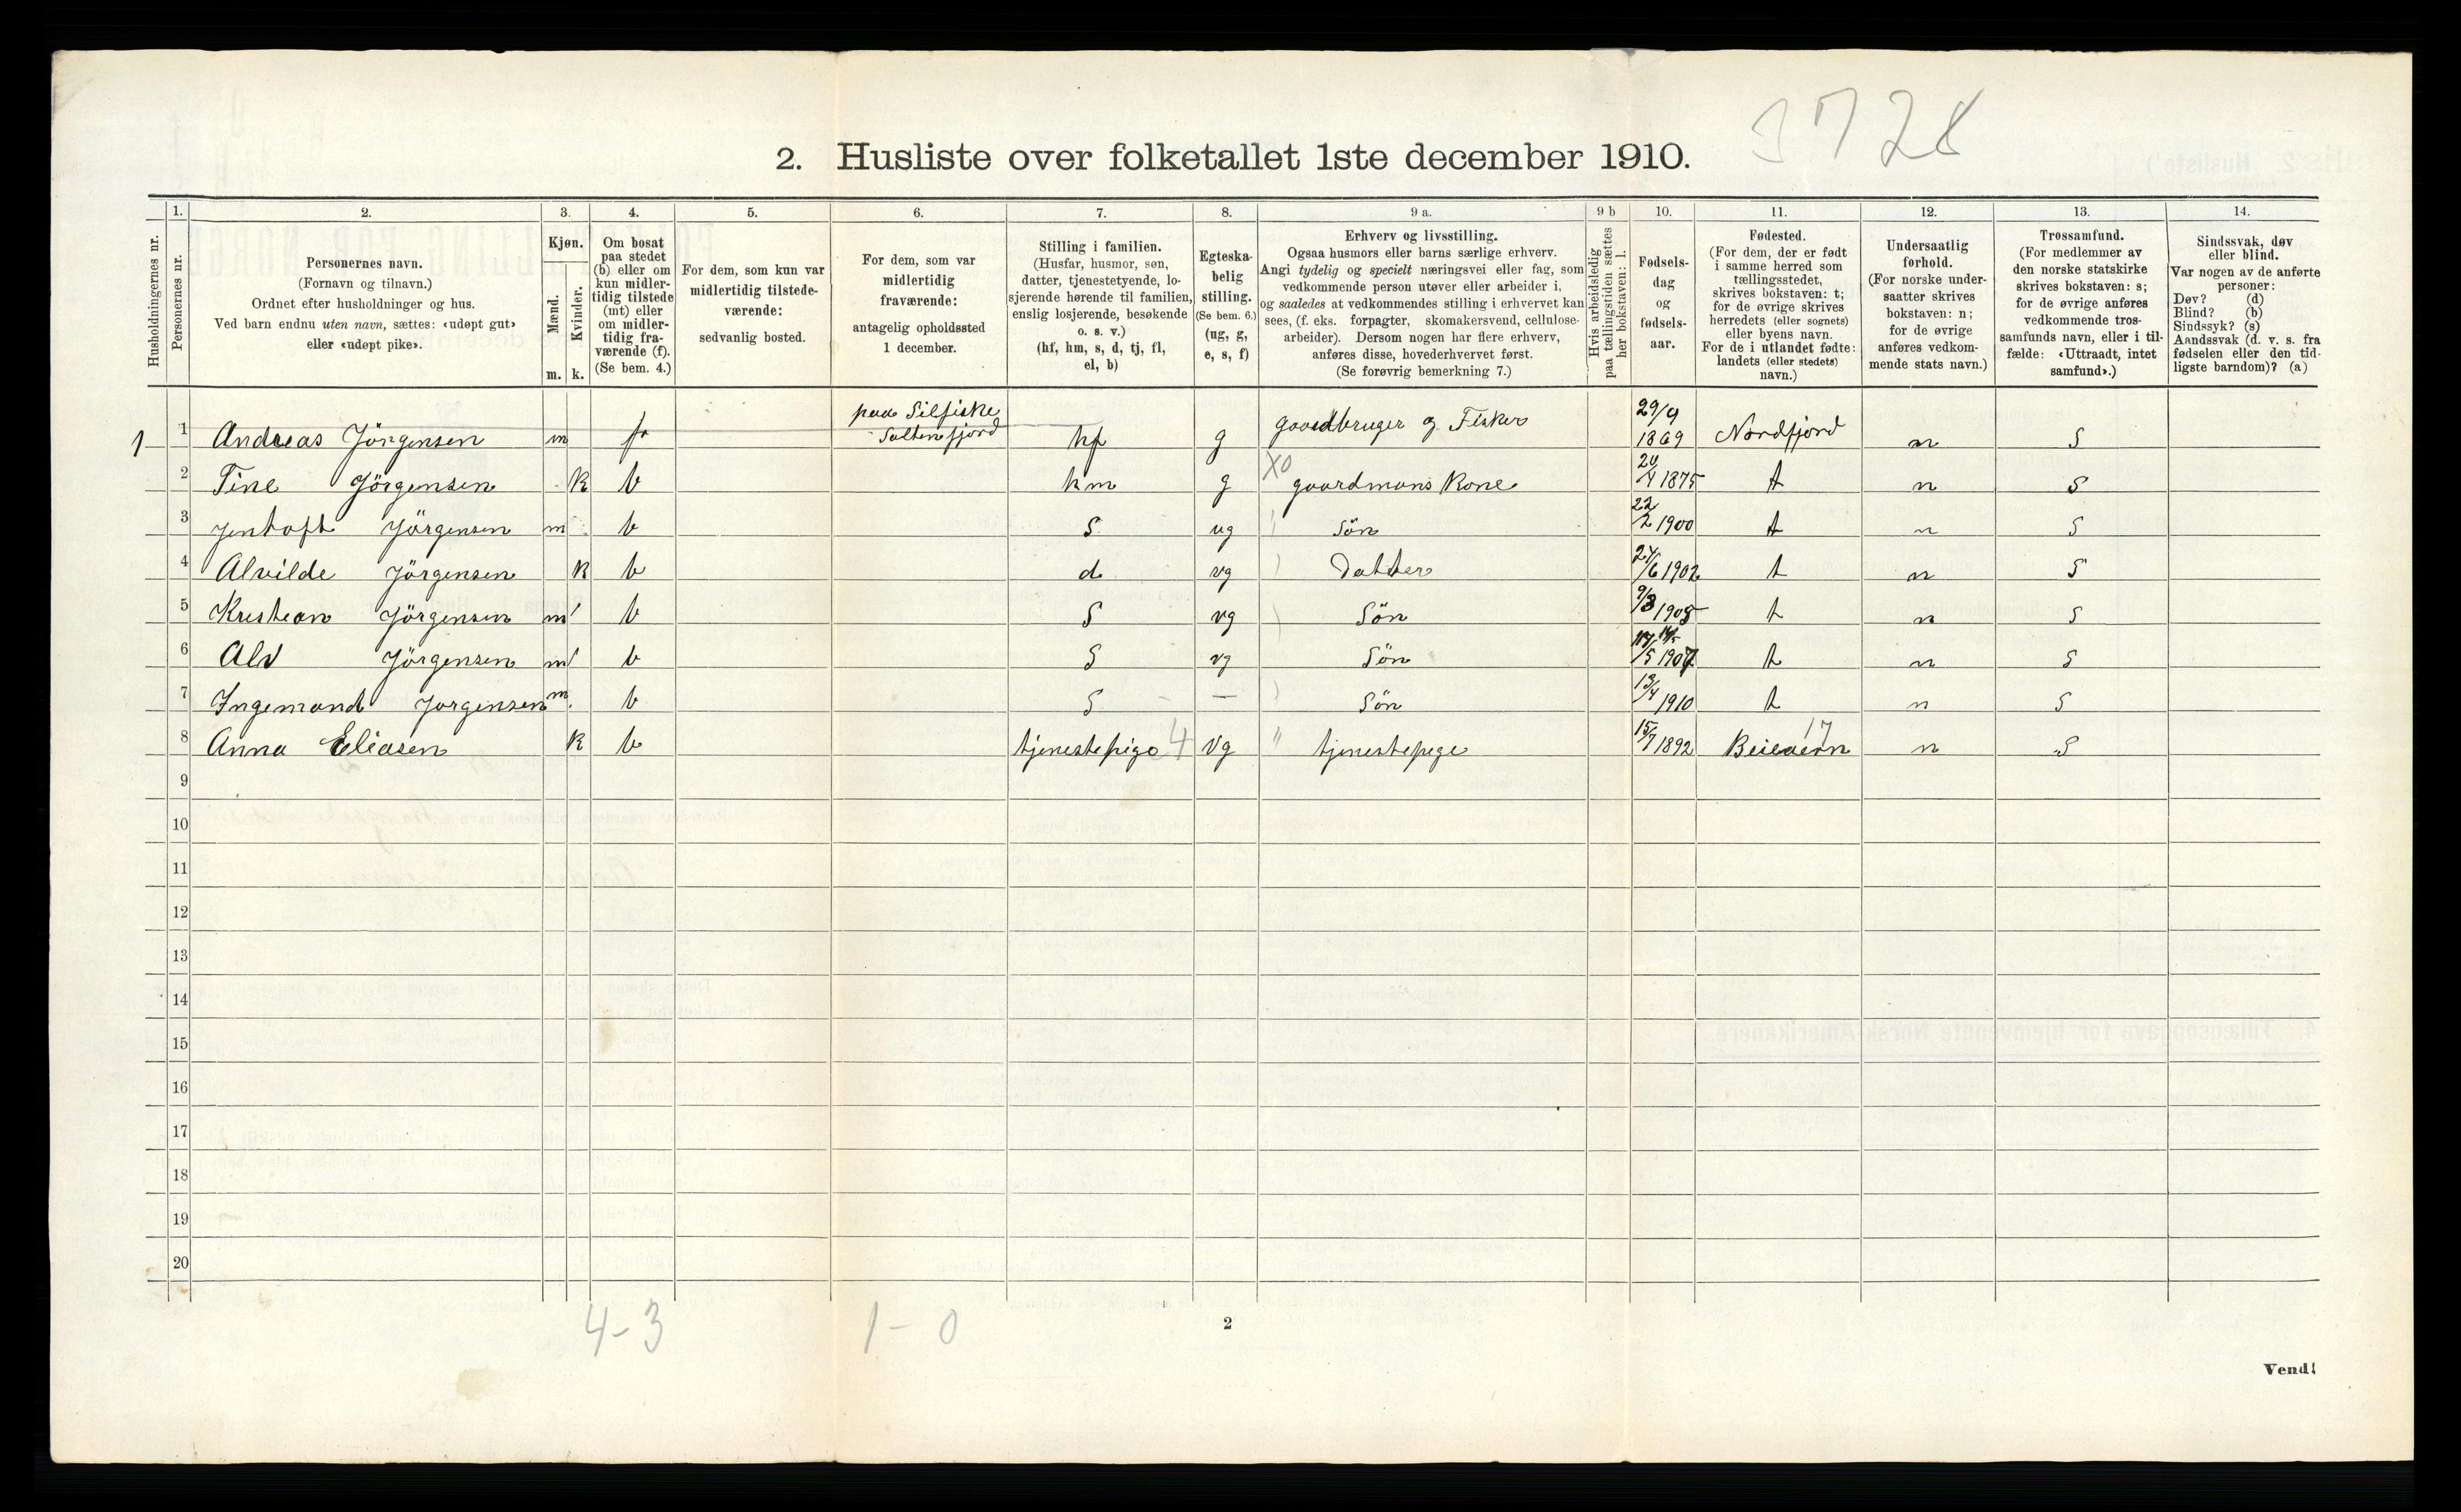 3728
2. Husliste over folketallet 1ste december 1910.
Husholdningernes nr.
1. Personernes nr.
2. Personernes navn.
(Fornavn og tilnavn.)
Ordnet efter husholdninger og hus.
Ved barn endnu uten navn, sættes: «udøpt gut»
eller «udøpt pike».
3. Kjøn.
Mænd. m.
Kvinder. k.
4. Om bosat
paa stedet
(b) eller om
kun midler-
tidig tilstede
(mt) eller
om midler-
tidig fra-
værende (f).
(Se bem. 4.)
5. For dem, som kun var
midlertidig tilstede-
værende:
sedvanlig bosted.
6. For dem, som var
midlertidig
fraværende:
antagelig opholdssted
1 december.
7. Stilling i familien.
(Husfar, husmor, søn,
datter, tjenestetyende, lo-
sjerende hørende til familien,
enslig losjerende, besøkende
o. s. v.)
(hf, hm, s, d, tj, fl,
el, b)
8. Egteska-
belig
stilling.
(Se bem. 6.)
(ug, g,
e, s, f)
9 a. Erhverv og livsstilling.
Ogsaa husmors eller barns særlige erhverv.
Angi tydelig og specielt næringsvei eller fag, som
vedkommende person utøver eller arbeider i,
og saaledes at vedkommendes stilling i erhvervet kan
sees, (f. eks. forpagter, skomakersvend, cellulose-
arbeider). Dersom nogen har flere erhverv,
anføres disse, hovederhvervet først.
(Se forøvrig bemerkning 7.)
9 b Hvis arbeidsledig
paa tællingstiden sættes
her bokstaven: l.
10. Fødsels-
dag
og
fødsels-
aar.
11. Fødested.
(For dem, der er født
i samme herred som
tællingsstedet,
skrives bokstaven: t;
for de øvrige skrives
herredets (eller sognets)
eller byens navn.
For de i utlandet fødte:
landets (eller stedets)
navn.)
12. Undersaatlig
forhold.
(For norske under-
saatter skrives
bokstaven: n;
for de øvrige
anføres vedkom-
mende stats navn.)
13. Trossamfund.
(For medlemmer av
den norske statskirke
skrives bokstaven: s;
for de øvrige anføres
vedkommende tros-
samfunds navn, eller i til-
fælde: «Uttraadt, intet
samfund».)
14. Sindssvak, døv
eller blind.
Var nogen av de anførte
personer:
Døv? (d)
Blind? (b)
Sindssyk? (s)
Aandssvak (d. v. s. fra
fødselen eller den tid-
ligste barndom)? (a)
1 1 Andreas Jörgensen m f paa Silfiske Saltenfjord hf g gaardbruger og Fisker 29/9 1869 Nordfjord n S
2 Tine Jörgensen k b hm g XO gaardmans Kone 20/4 1875 t n S
3 Jentoft Jörgensen m b S ug Sön 22/2 1900 t n S
4 Alvilde Jörgensen k b d ug Datter 24/6 1902 t n S
5 Kristian Jörgensen m b S ug Sön 9/3 1905 t n S
6 Alv Jörgensen m b S ug Sön /5 1907 t n S
7 Ingemand Jorgensen m b S – Sön 13/4 1910 t n S
8 Anna Eliasen k b tjenestepige 4 ug " tjenestepige 15/7 1892 Beieaern 17 n S
9
10
11
12
13
14
15
16
17
18
19
20
4-3 1-0
2
Vend!